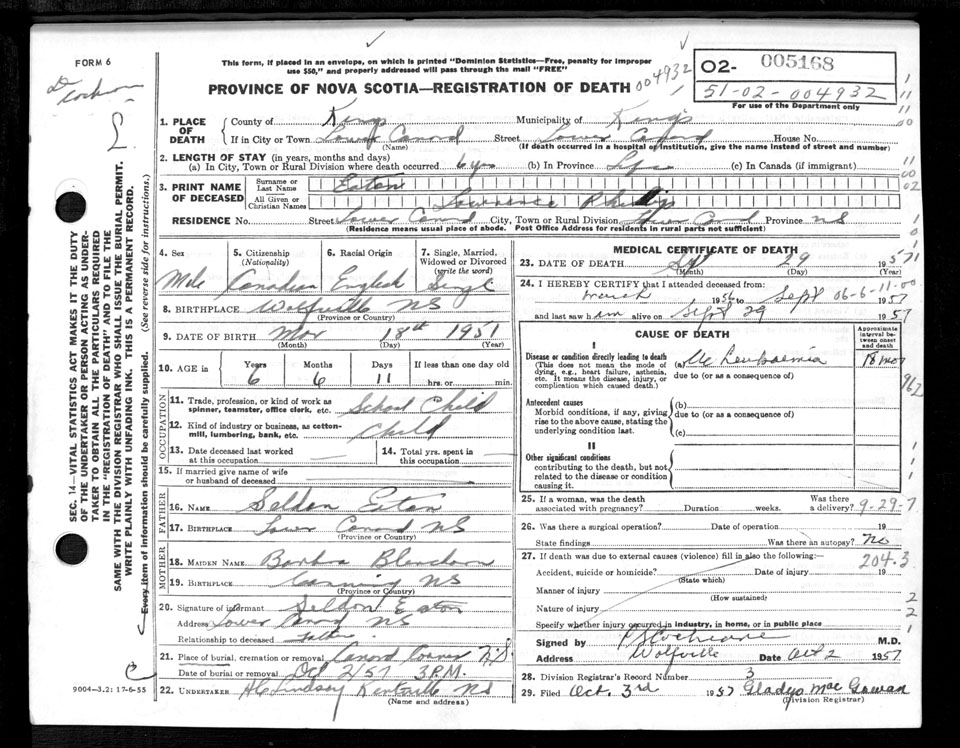 FORM 6
This form, if placed in an envelope, on which is printed "Dominion Statistics—Free, penalty for improper
use $50," and properly addressed will pass through the mail "FREE"
PROVINCE OF NOVA SCOTIA—REGISTRATION OF DEATH
004932
02- 005168
51-02-004932
For use of the Department only
1. PLACE OF DEATH
County of Kings Municipality of Kings
If in City or Town Lower Canard Street Lower Canard House No.
(Name) (If death occurred in a hospital or institution, give the name instead of street and number)
2. LENGTH OF STAY (in years, months and days)
(a) In City, Town or Rural Division where death occurred 6 yrs (b) In Province (c) In Canada (if immigrant)
3. PRINT NAME OF DECEASED
Surname or Last Name Eaton
All Given or Christian Names Lawrence Phillip
RESIDENCE No. Street Lower Canard City, Town or Rural Division Lower Canard Province NS
(Residence means usual place of abode. Post Office Address for residents in rural parts not sufficient)
4. Sex
Male
5. Citizenship
(Nationality)
Canadian
6. Racial Origin
English
7. Single, Married,
Widowed or Divorced
(write the word)
Single
8. BIRTHPLACE Wolfville NS
(Province or Country)
9. DATE OF BIRTH Mar 18th 1951
(Month) (Day) (Year)
10. AGE in Years Months Days If less than one day old
6 6 11 hrs. or min.
OCCUPATION
11. Trade, profession, or kind of work as
spinner, teamster, office clerk, etc. School Child
12. Kind of industry or business, as cotton-
mill, lumbering, bank, etc. Child
13. Date deceased last worked
at this occupation
14. Total yrs. spent in
this occupation
15. If married give name of wife
or husband of deceased
FATHER
16. NAME Seldon Eaton
17. BIRTHPLACE Lower Canard NS
(Province or Country)
MOTHER
18. MAIDEN NAME
19. BIRTHPLACE Canning NS
(Province or Country)
20. Signature of informant Seldon Eaton
Address Lower Canard NS
Relationship to deceased Father
21. Place of burial, cremation or removal Canard Corner N.S.
Date of burial or removal Oct 2/57 3 P.M.
22. UNDERTAKER Lindsay Kentville NS
(Name and address)
9004—3.2: 17-6-55
MEDICAL CERTIFICATE OF DEATH
23. DATE OF DEATH Sept 29 1957
(Month) (Day) (Year)
24. I HEREBY CERTIFY that I attended deceased from:
March 1956 to Sept 1957
06-6-11-00
and last saw him alive on Sept 29 1957
CAUSE OF DEATH
Approximate interval between onset and death
I
Disease or condition directly leading to death
(This does not mean the mode of
dying, e.g., heart failure, asthenia,
etc. It means the disease, injury, or
complication which caused death.)
(a) Leukaemia 18 mos
due to (or as a consequence of)
Antecedent causes
Morbid conditions, if any, giving
rise to the above cause, stating the
underlying condition last.
(b)
due to (or as a consequence of)
(c)
II
Other significant conditions
contributing to the death, but not
related to the disease or condition
causing it.
25. If a woman, was the death
associated with pregnancy? Duration weeks. Was there
a delivery? 9-29-7
26. Was there a surgical operation? Date of operation 19
State findings Was there an autopsy? No
27. If death was due to external causes (violence) fill in also the following:
204.3
Accident, suicide or homicide? Date of injury 19
(State which)
Manner of injury
(How sustained)
Nature of injury
Specify whether injury occurred in industry, in home, or in public place
Signed by Cochrane M.D.
Address Wolfville Date Oct 2 1957
28. Division Registrar's Record Number 3
29. Filed Oct. 3rd 1957 Gladys Mac Gowan
(Division Registrar)
SEC. 14—VITAL STATISTICS ACT MAKES IT THE DUTY
OF THE UNDERTAKER OR PERSON ACTING AS UNDER-
TAKER TO OBTAIN ALL THE PARTICULARS REQUIRED
IN THE "REGISTRATION OF DEATH" AND TO FILE THE
SAME WITH THE DIVISION REGISTRAR WHO SHALL ISSUE THE BURIAL PERMIT.
WRITE PLAINLY WITH UNFADING INK. THIS IS A PERMANENT RECORD.
Every item of information should be carefully supplied. (See reverse side for instructions.)